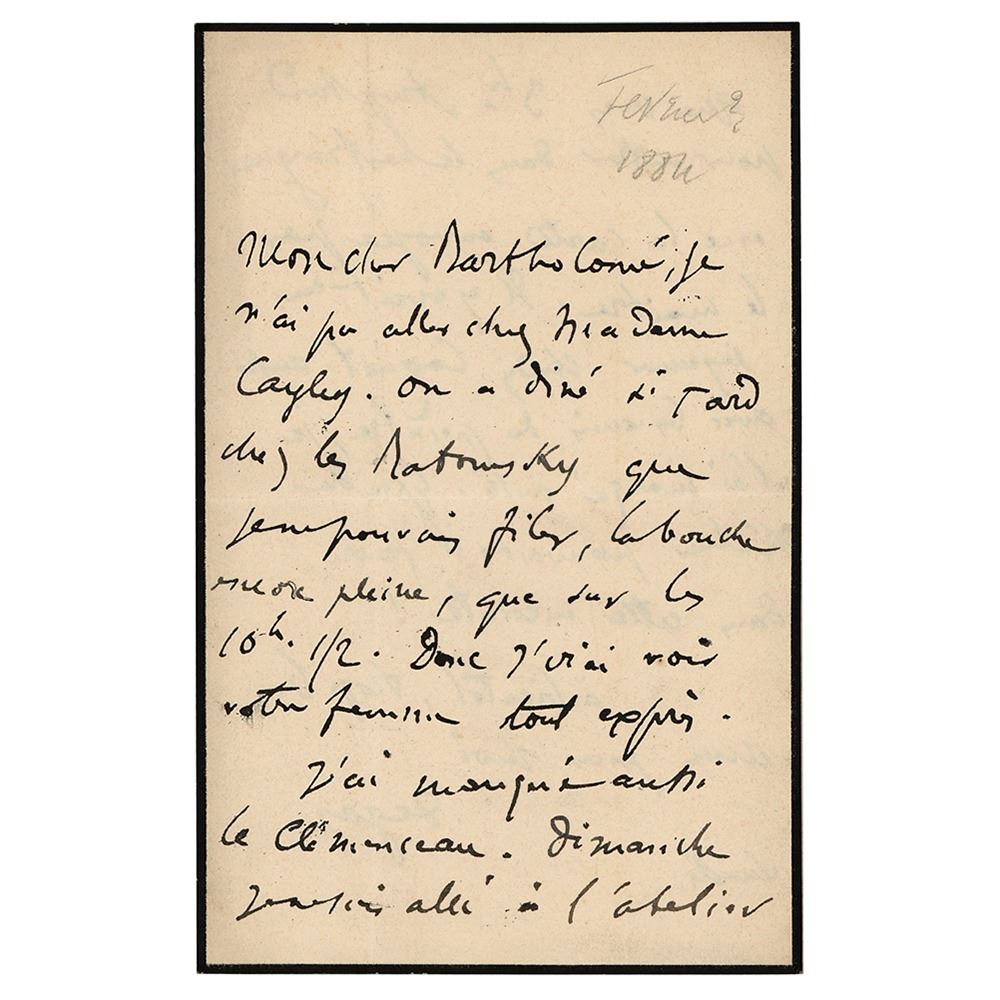 Fevrier
1884
Mon cher Bartholomé, je
n'ai pu aller chez Madame
Cayley. on a diné si tard
chez les Ratomsky que
je ne pouvais filer, la bouche
encore pleine, que sur les
10h. 1/2. Donc j'irai voir
votre femme tout exprès.
J'ai manqué aussi
le Clémenceau. Dimanche
je ne suis allé à l'atelier